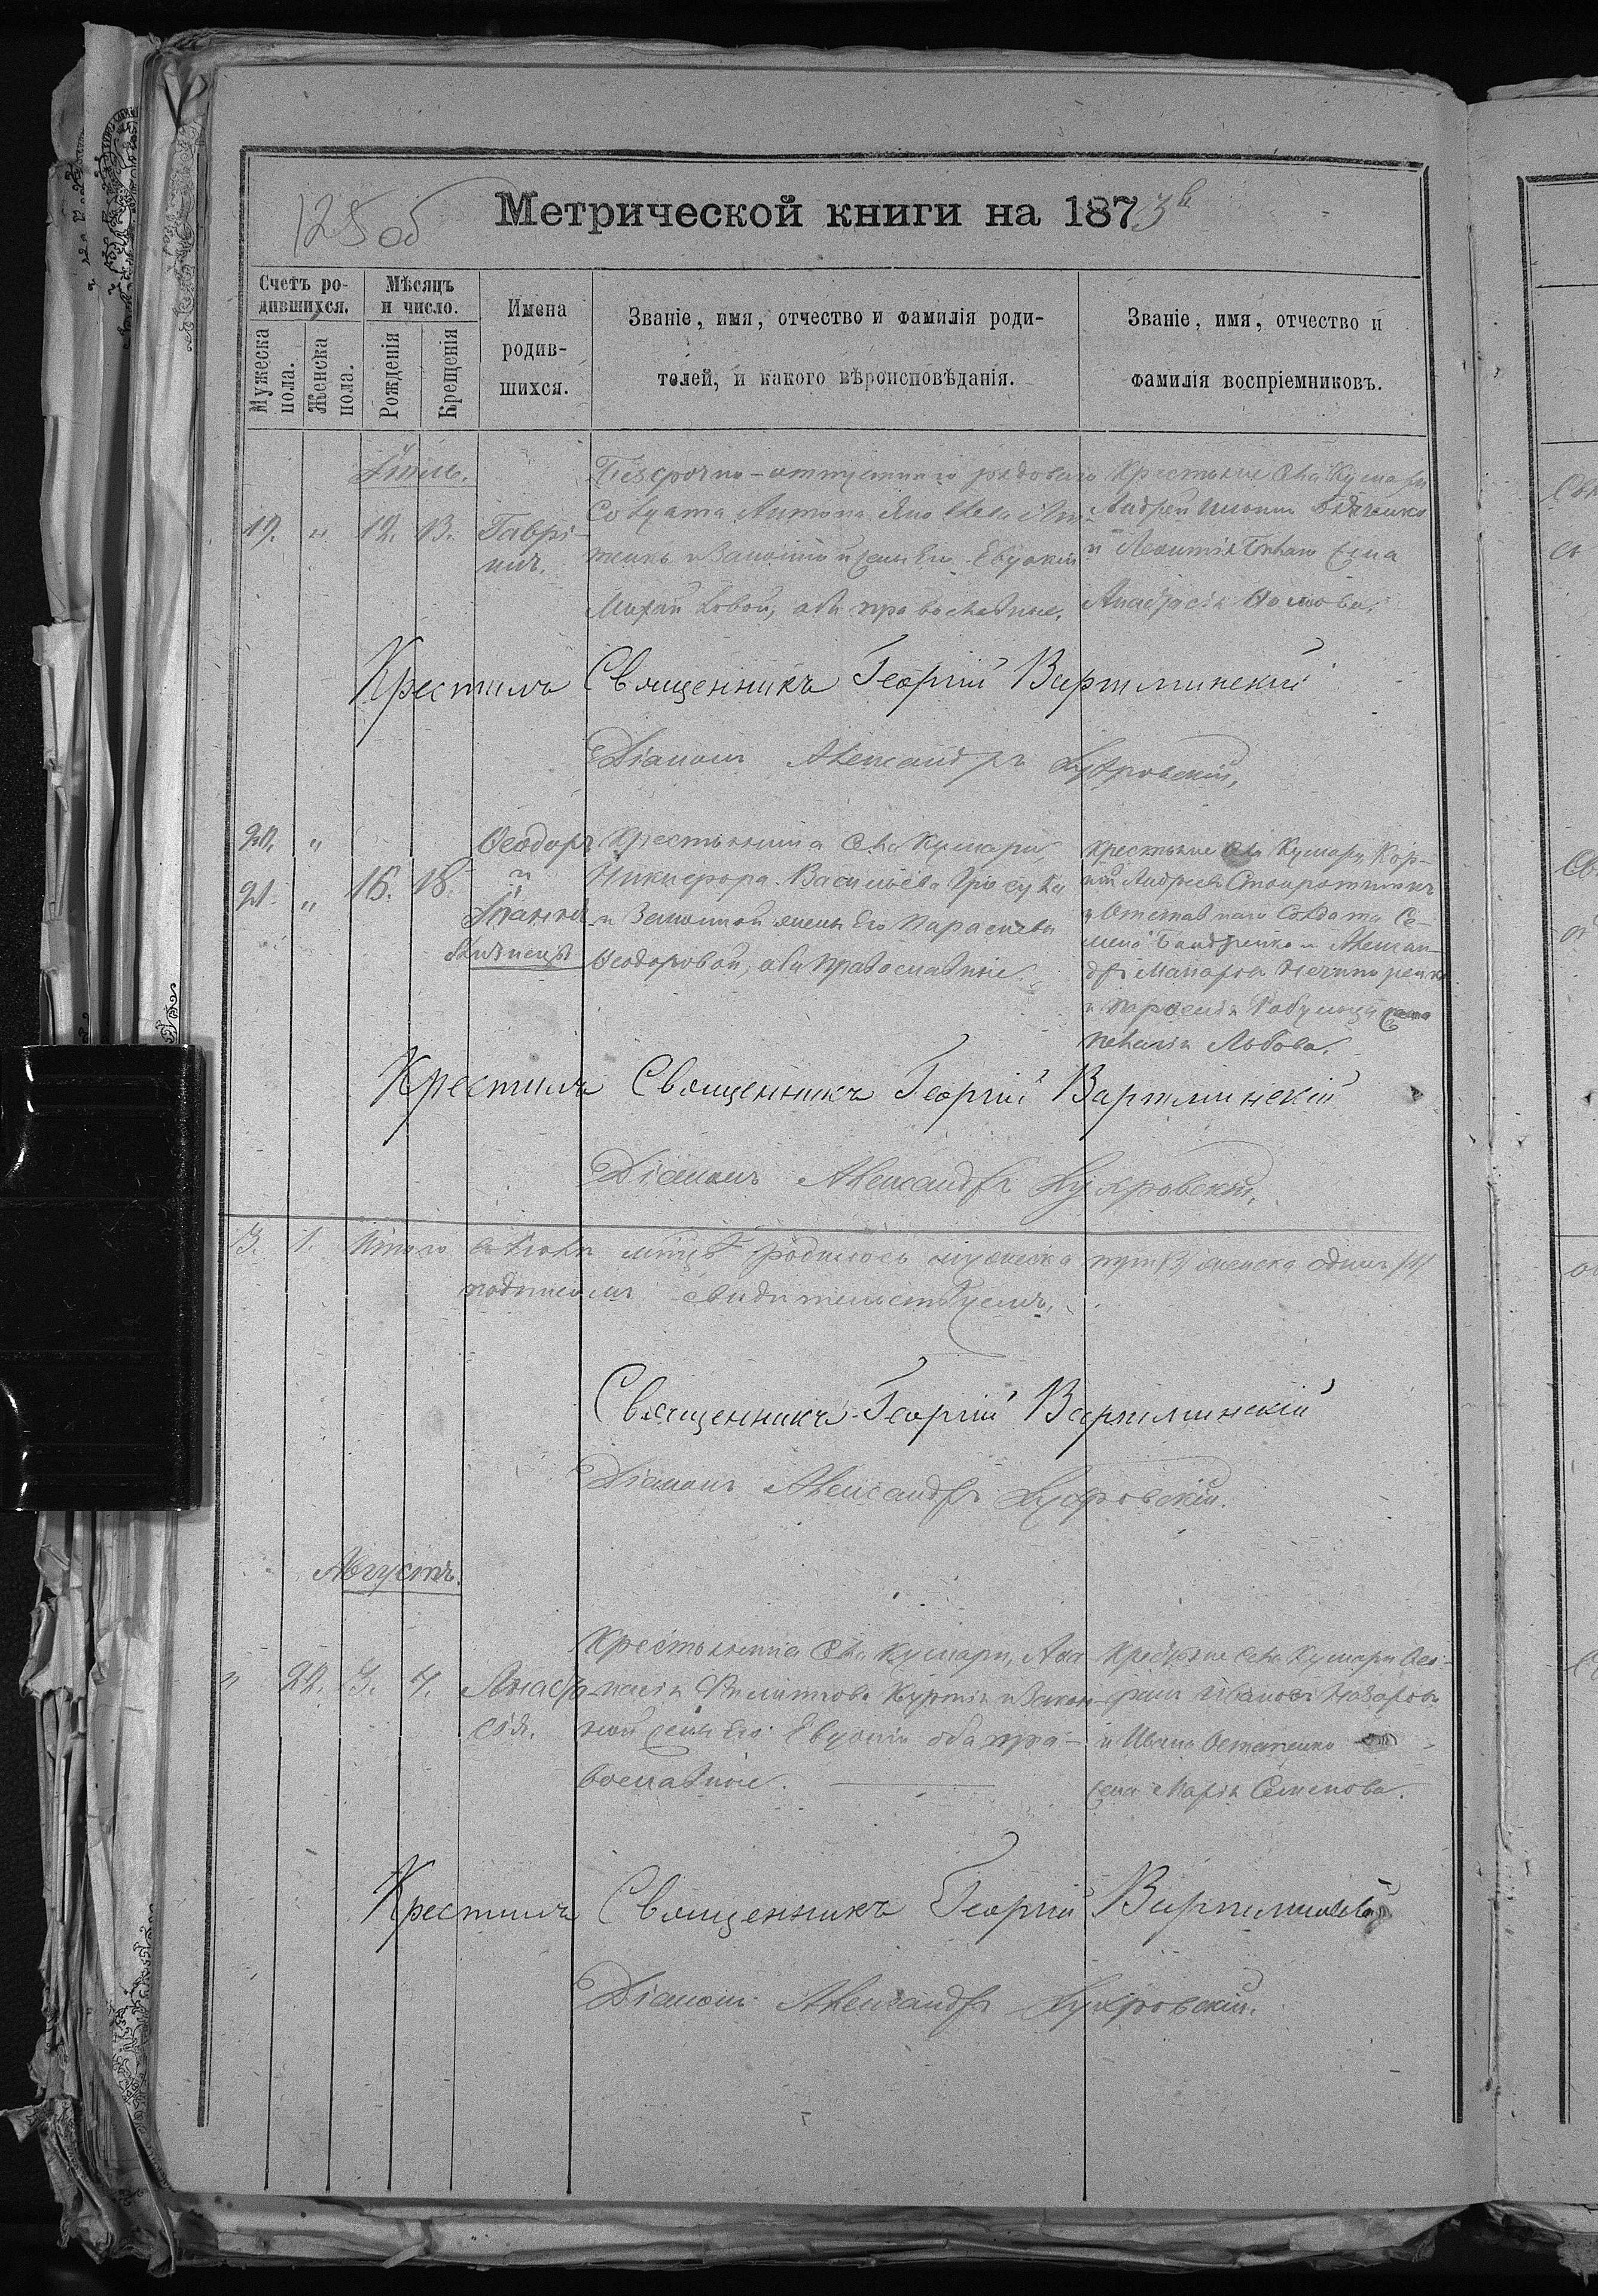 125 об
Метрической книги на 1873 г.
Счетъ ро-
дившихся.
Мѣсяцъ
и число.
Мужеска
пола.
Женска
пола.
Рожденія
Крещенія
Имена
родив-
шихся.
Званіе, имя, отчество и фамилія роди-
телей, и какого вѣроисповѣданія.
Званіе, имя, отчество и
фамилія воспріемниковъ.
Іюль.
19. " 12. 13. Гаврі-
илъ.
Безсрочно-отпускнаго рядоваго
Солдата Антона
и Законной жены Его Евдокіи
Михайловой, оба православные.
Крестьяне села Кумары
Андрей
и Леонтія жена
Анастасія
Крестилъ Священникъ Георгій Вартминскій
Діаконъ Александръ Дубровскій.
20. "
21. " 16. 18.
Ѳеодоръ
и
Іоаннъ
близнецы
Крестьянина села Кумары,
Никифора Васильева
и Законной жены Его Параскевы
Ѳеодоровой, оба православные.
Крестьяне села Кумары Кор-
ній Андреевъ
и Отставнаго Солдата Се-
мена Бондаренко и Алексан-
дръ Макаровъ Нечипоренко
и жена
Пелагія Львова.
Крестилъ Священникъ Георгій Вартминскій
Діаконъ Александръ Дубровскій.
3. 1. Итого въ Іюлѣ мѣсяцѣ родилось мужеска три (3) женска одинъ (1)
подписомъ свидѣтельствуемъ,
Священникъ Георгій Вартминскій
Діаконъ Александръ Дубровскій.
Августъ.
" 22. 3. 4. Анаста-
сія.
Крестьянина села Кумары, Аѳа-
насія Филиппова и Закон-
ной жены Его Евдокіи оба пра-
вославные.
Крестьяне села Кумары
Ивановъ Назаровъ
и Ивана Остапенко
жена Марія Семенова.
Крестилъ Священникъ Георгій Вартминскій
Діаконъ Александръ Дубровскій.